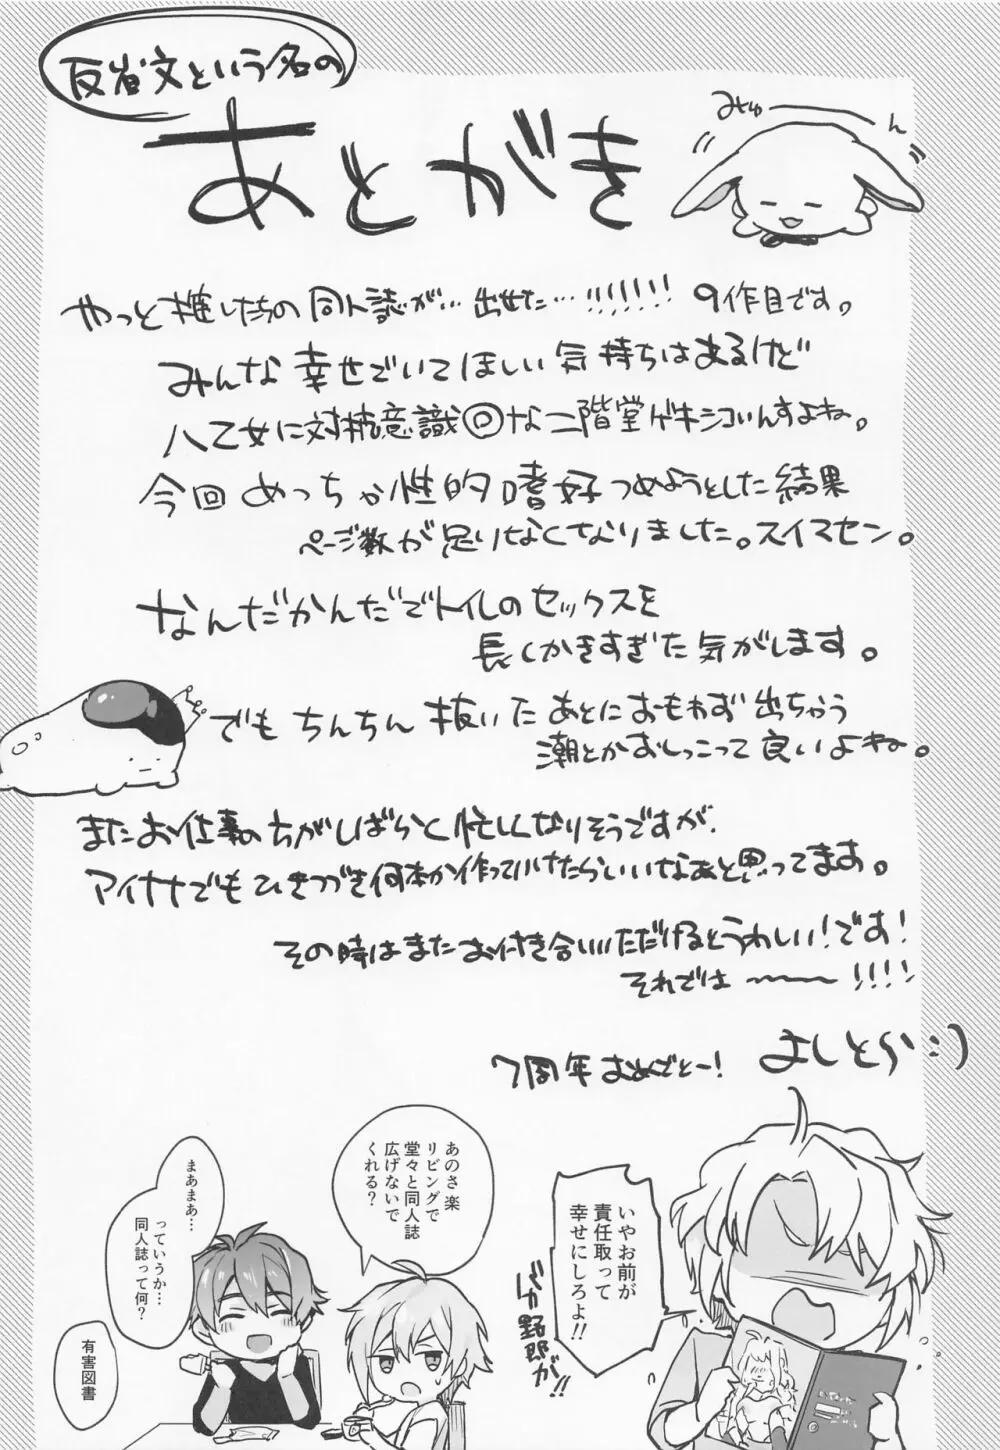 反省文という名の
あとがき
みゅーーーん
やっと推したちの同人誌が…出せた…!!!!!! 9作目です。
みんな幸せでいてほしい気持ちはあるけど
八乙女に対抗意識◎な二階堂ゲキシコいんすよね。
今回めっちゃ性的嗜好つめようとした結果
ページ数が足りなくなりました。スイマセン。
なんだかんだでトイレのセックスを
長くかきすぎた気がします。
でもちんちん抜いたあとにおもわず出ちゃう
潮とかおしっこって良いよね。
またお仕事の方がしばらく忙しくなりそうですが、
アイナナでもひきつづき何本か作っていけたらいいなぁと思ってます。
その時はまたお付き合いいただけるとうれしい!です!
それでは〜〜!!!!
よしとら:)
7周年おめでとー!
いやお前が
責任取って
幸せにしろよ!!
バカ野郎が!!
あのさ楽
リビングで
堂々と同人誌
広げないで
くれる?
まあまあ…
っていうか…
同人誌って何?
有害図書